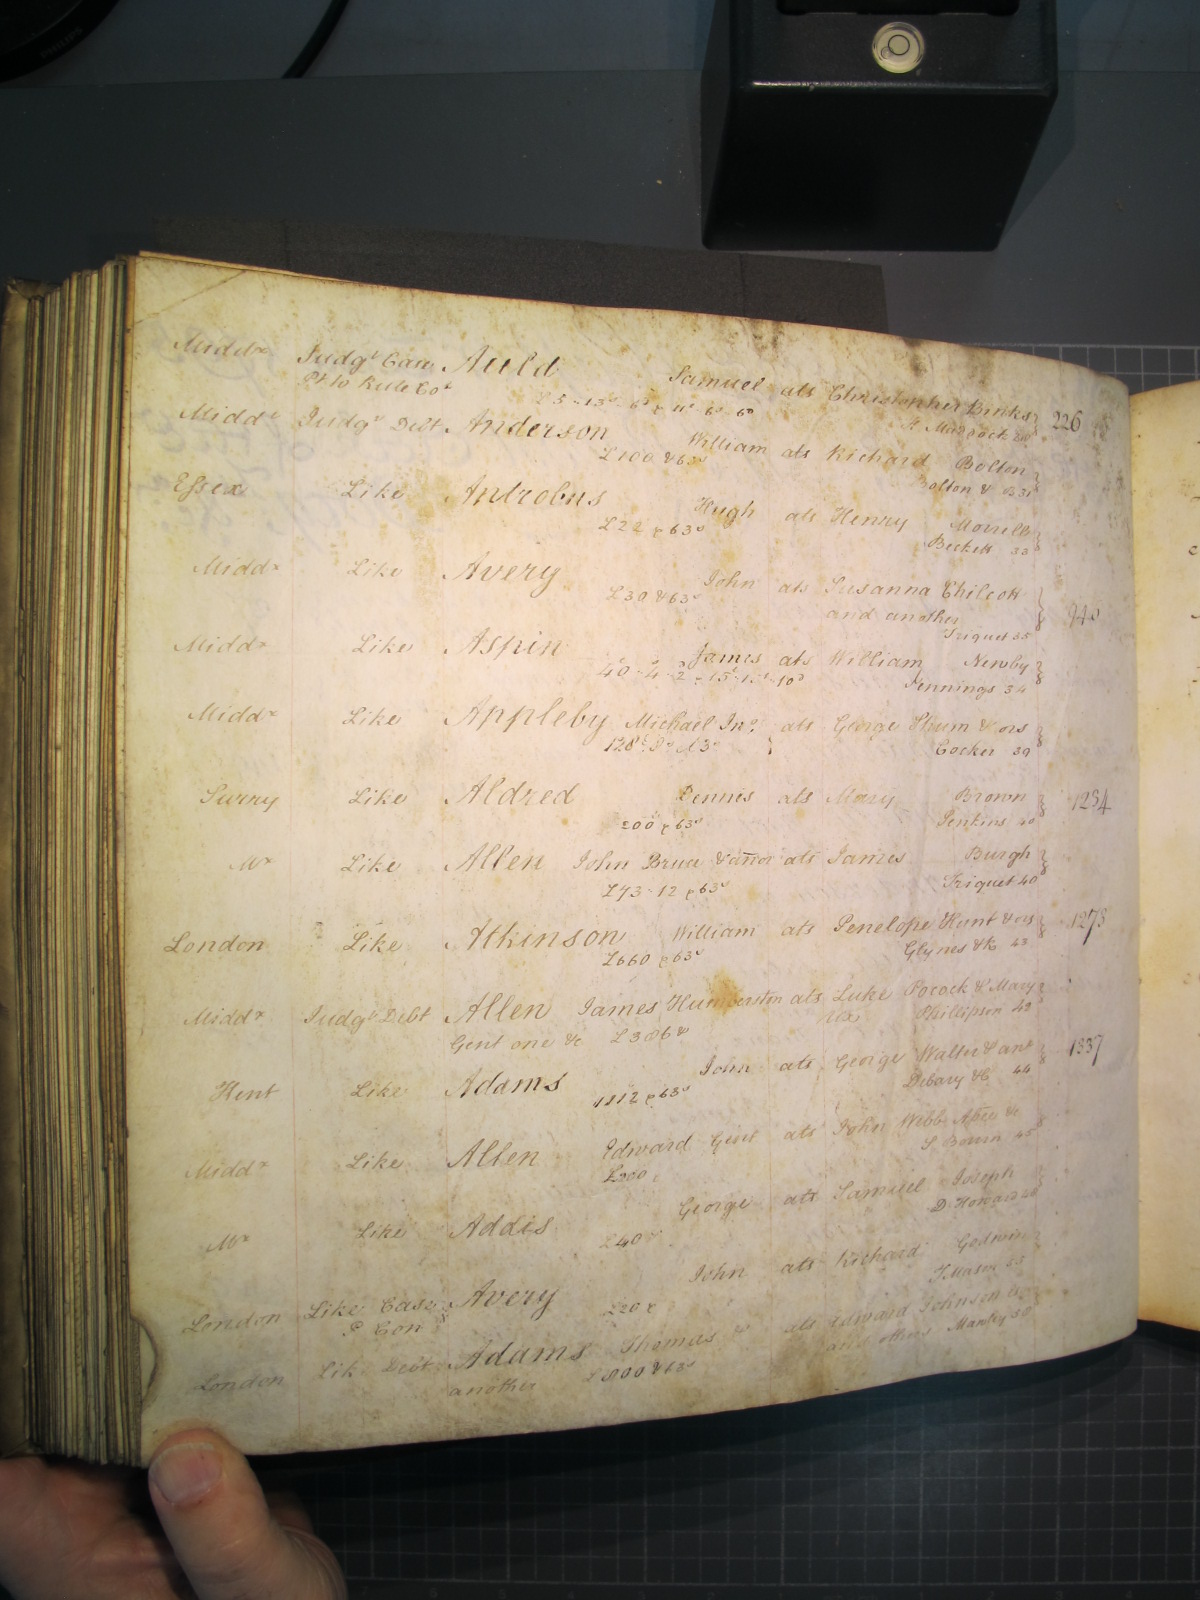 Middx Judgt Case Auld Samuel ats Christopher Binks 226
Pt to Rule Cot £5-13s-6d & 11s 6s 6d Maddock
Middx Judgt Debt Anderson William ats Richard Bolton
£100 & 63s Bolton &
Essex Like Antrobus Hugh ats Henry Morrell
£22 & 63s Beckett 33
Middx Like Avery John ats Susanna Chilcott
£30 & 63s and another
Triquet 35
Middx Like Aspin James ats William Newby
40-4-2 Jennings 34
Middx Like Appleby Michael Jnr ats George Thum & ors
Cocker 39
Surry Like Aldred Dennis ats Mary Brown 1234
200 & 63s Jenkins 40
Mx Like Allen John Bruce & anor ats James Burgh
£73-12 & 63s Triquet 40
London Like Atkinson William ats Penelope Hunt & ors 1273
£660 & 63s Glynes & Co 43
Middx Judgt Debt Allen James Humberston ats Luke Pocock & Mary
Gent one &c £306 & Phillipson 43
Kent Like Adams John ats George Walter & anr 1337
1112 & 63s Debary & Co 44
Middx Like Allen Edward Gent ats John Webb
£200 S Bourn 45
Mx Like Addis George ats Samuel Joseph
£40 D Howard
London Like Case Avery John ats Richard Godwin
P Con £20 & T Mason 55
London Like Debt Adams Thomas & ats Edward Johnson
another £800 & 63s and others Manley 58